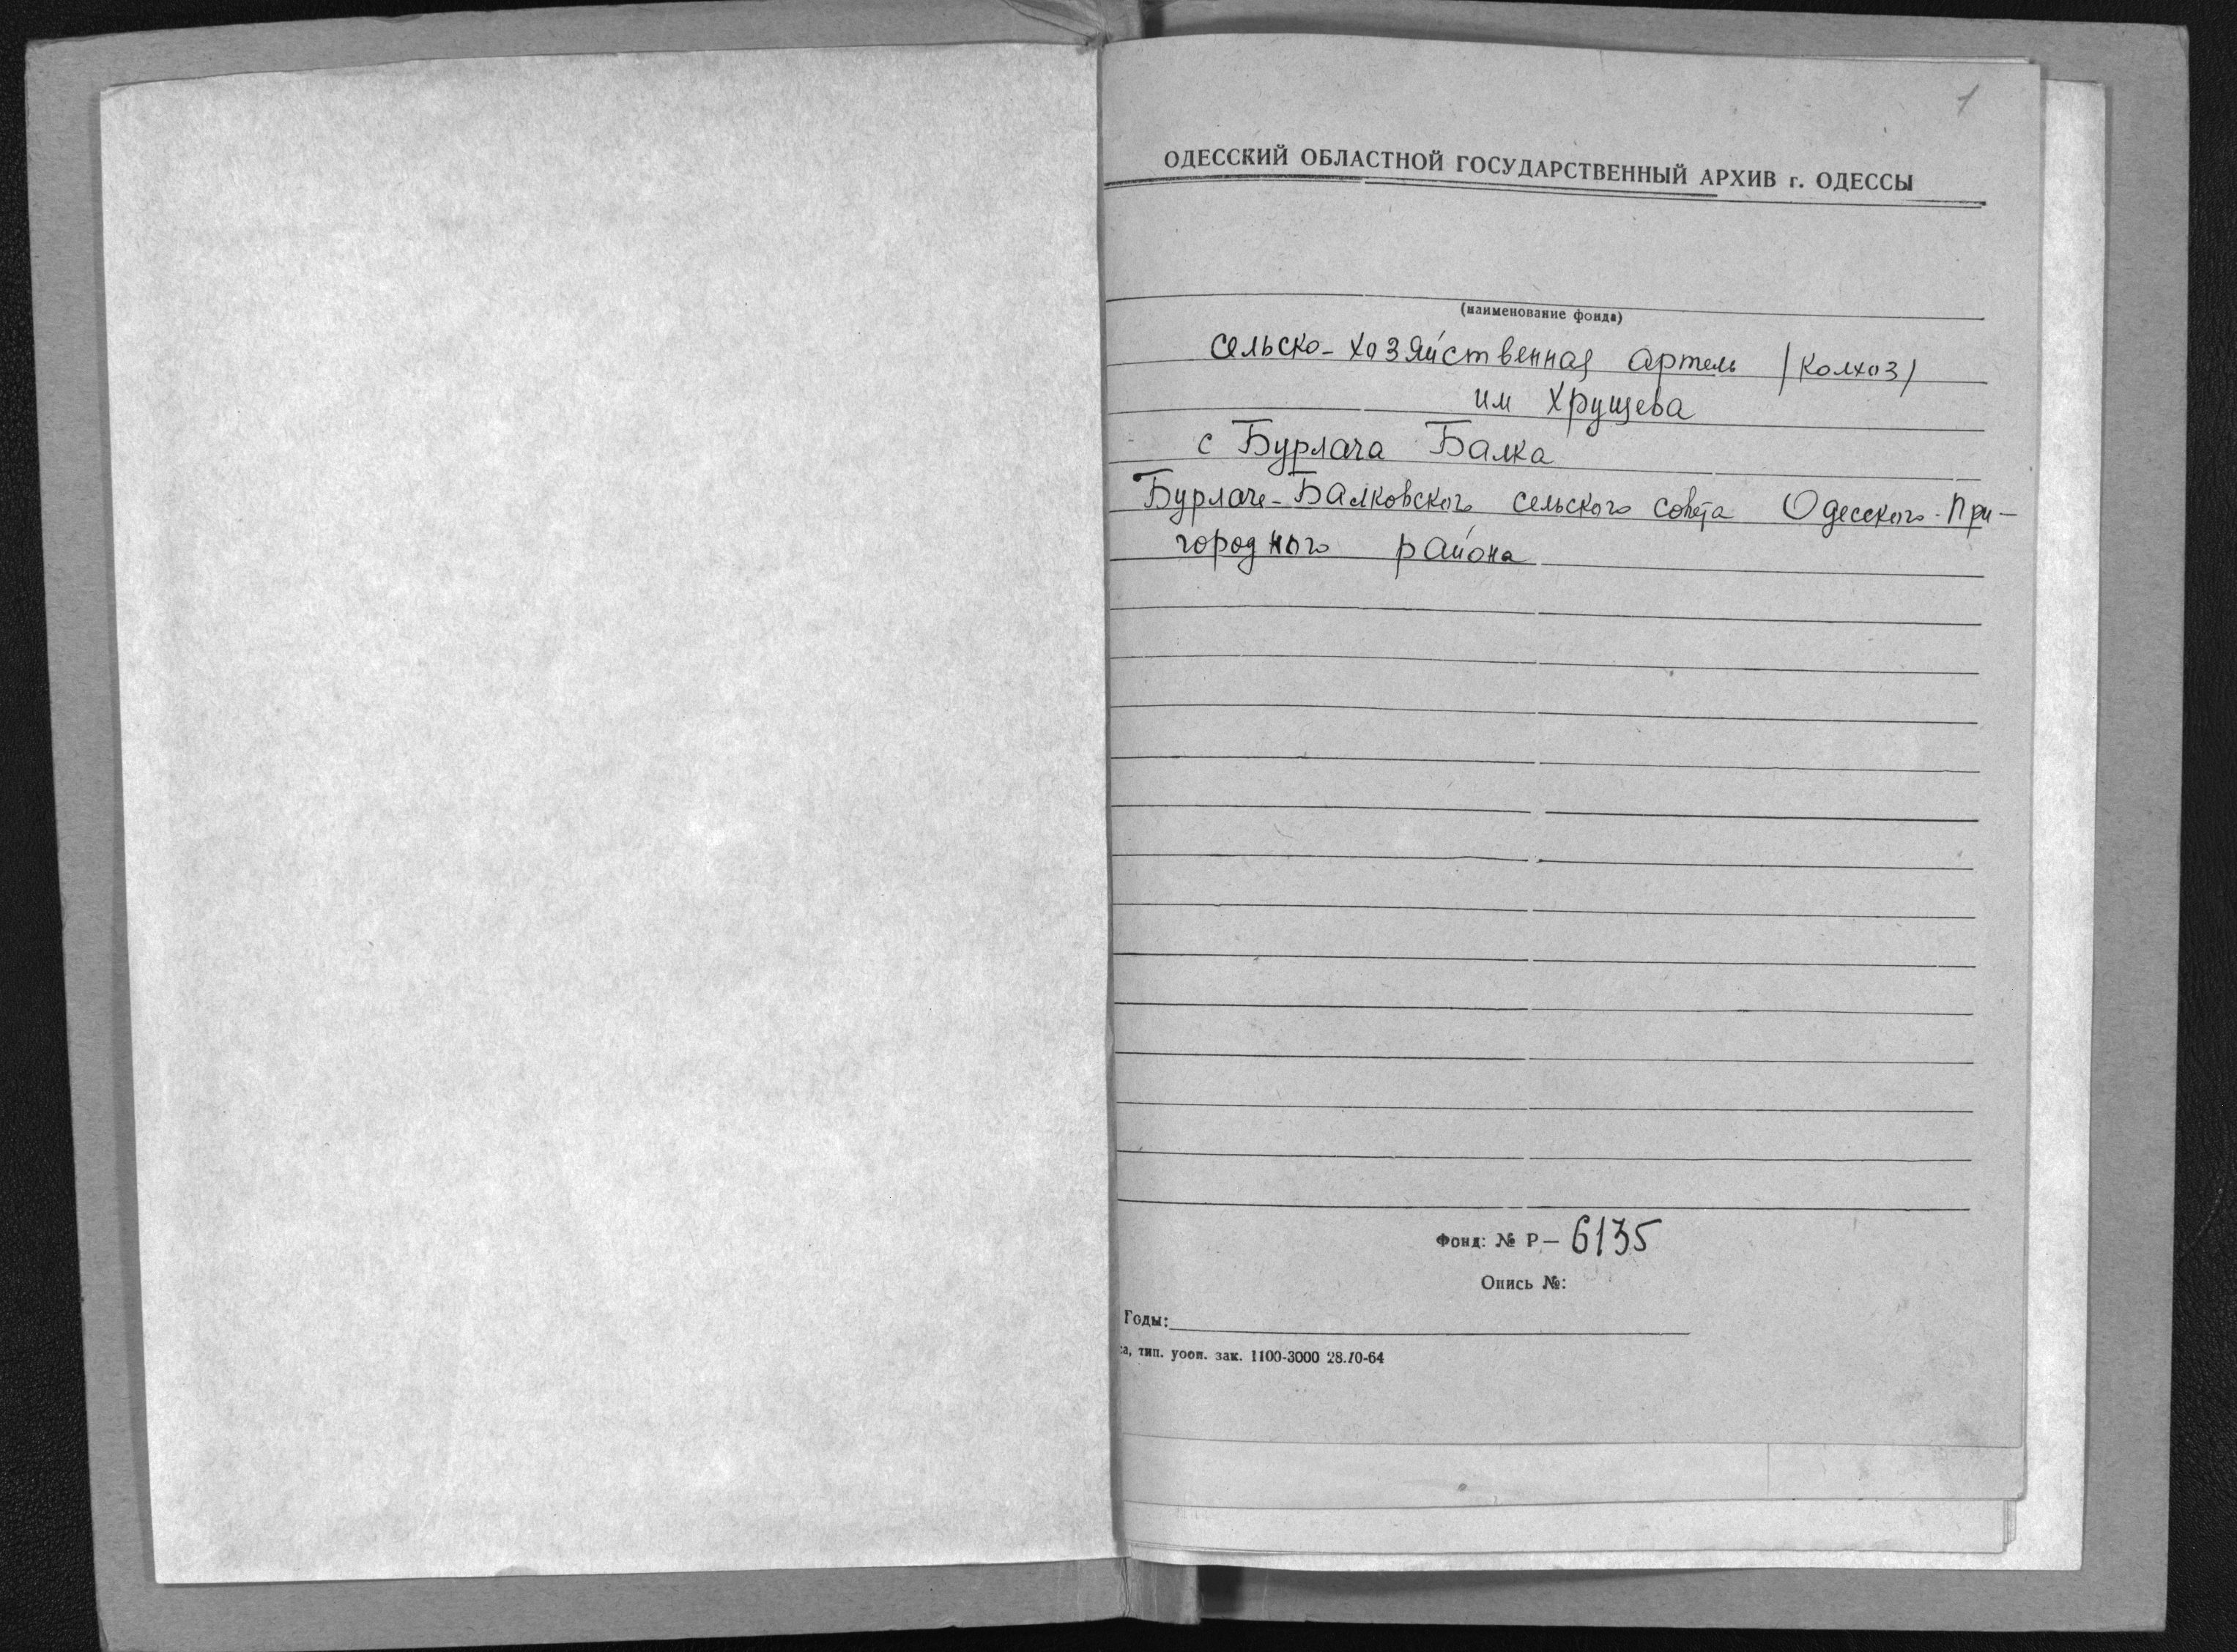 1
ОДЕССКИЙ ОБЛАСТНОЙ ГОСУДАРСТВЕННЫЙ АРХИВ г. ОДЕССЫ
(наименование фонда)
сельско-хозяйственная артель /колхоз/
им Хрущева
с Бурлача Балка
Бурлаче-Балковского сельского совета Одесского-При-
городного района
Фонд: № Р— 6135
Опись №:
Годы:
са, тип. уооп. зак. 1100-3000 28.10-64